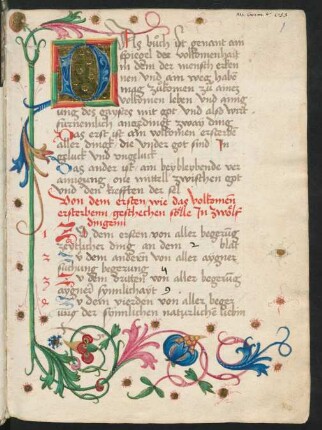 Ms. Germ. 4° 1133
1
Das büch ist genant ain
spiegel der volkomenhait
in dem der mensch erken
nen und ain weg haben
mag zükomen zu ainez
volkomen leben und ainig
ung des gaystes mit got und also wirt
fürnemlich angedingt zway ding
Das erst ist ain volkomen ersterbē
aller dingk die under got sind In
gelück und unglück
Das ander ist ain beybleybende ver
ainigung one mittell zwischen got
und den krefften der sel
Von dem ersten wie das volkomen
ersterbenn geschechen sölle In zwölf
dingenn
1 Von dem ersten von aller begerūg
zeytlicher ding an dem 2 blat
2 von dem anderen von aller aygner
süchung begerung 4
3 von dem dritten von aller begerūg
aygner synnlichayt 9
4 von dem vierden von aller beger
ung der synnlichen natürlichē liebin